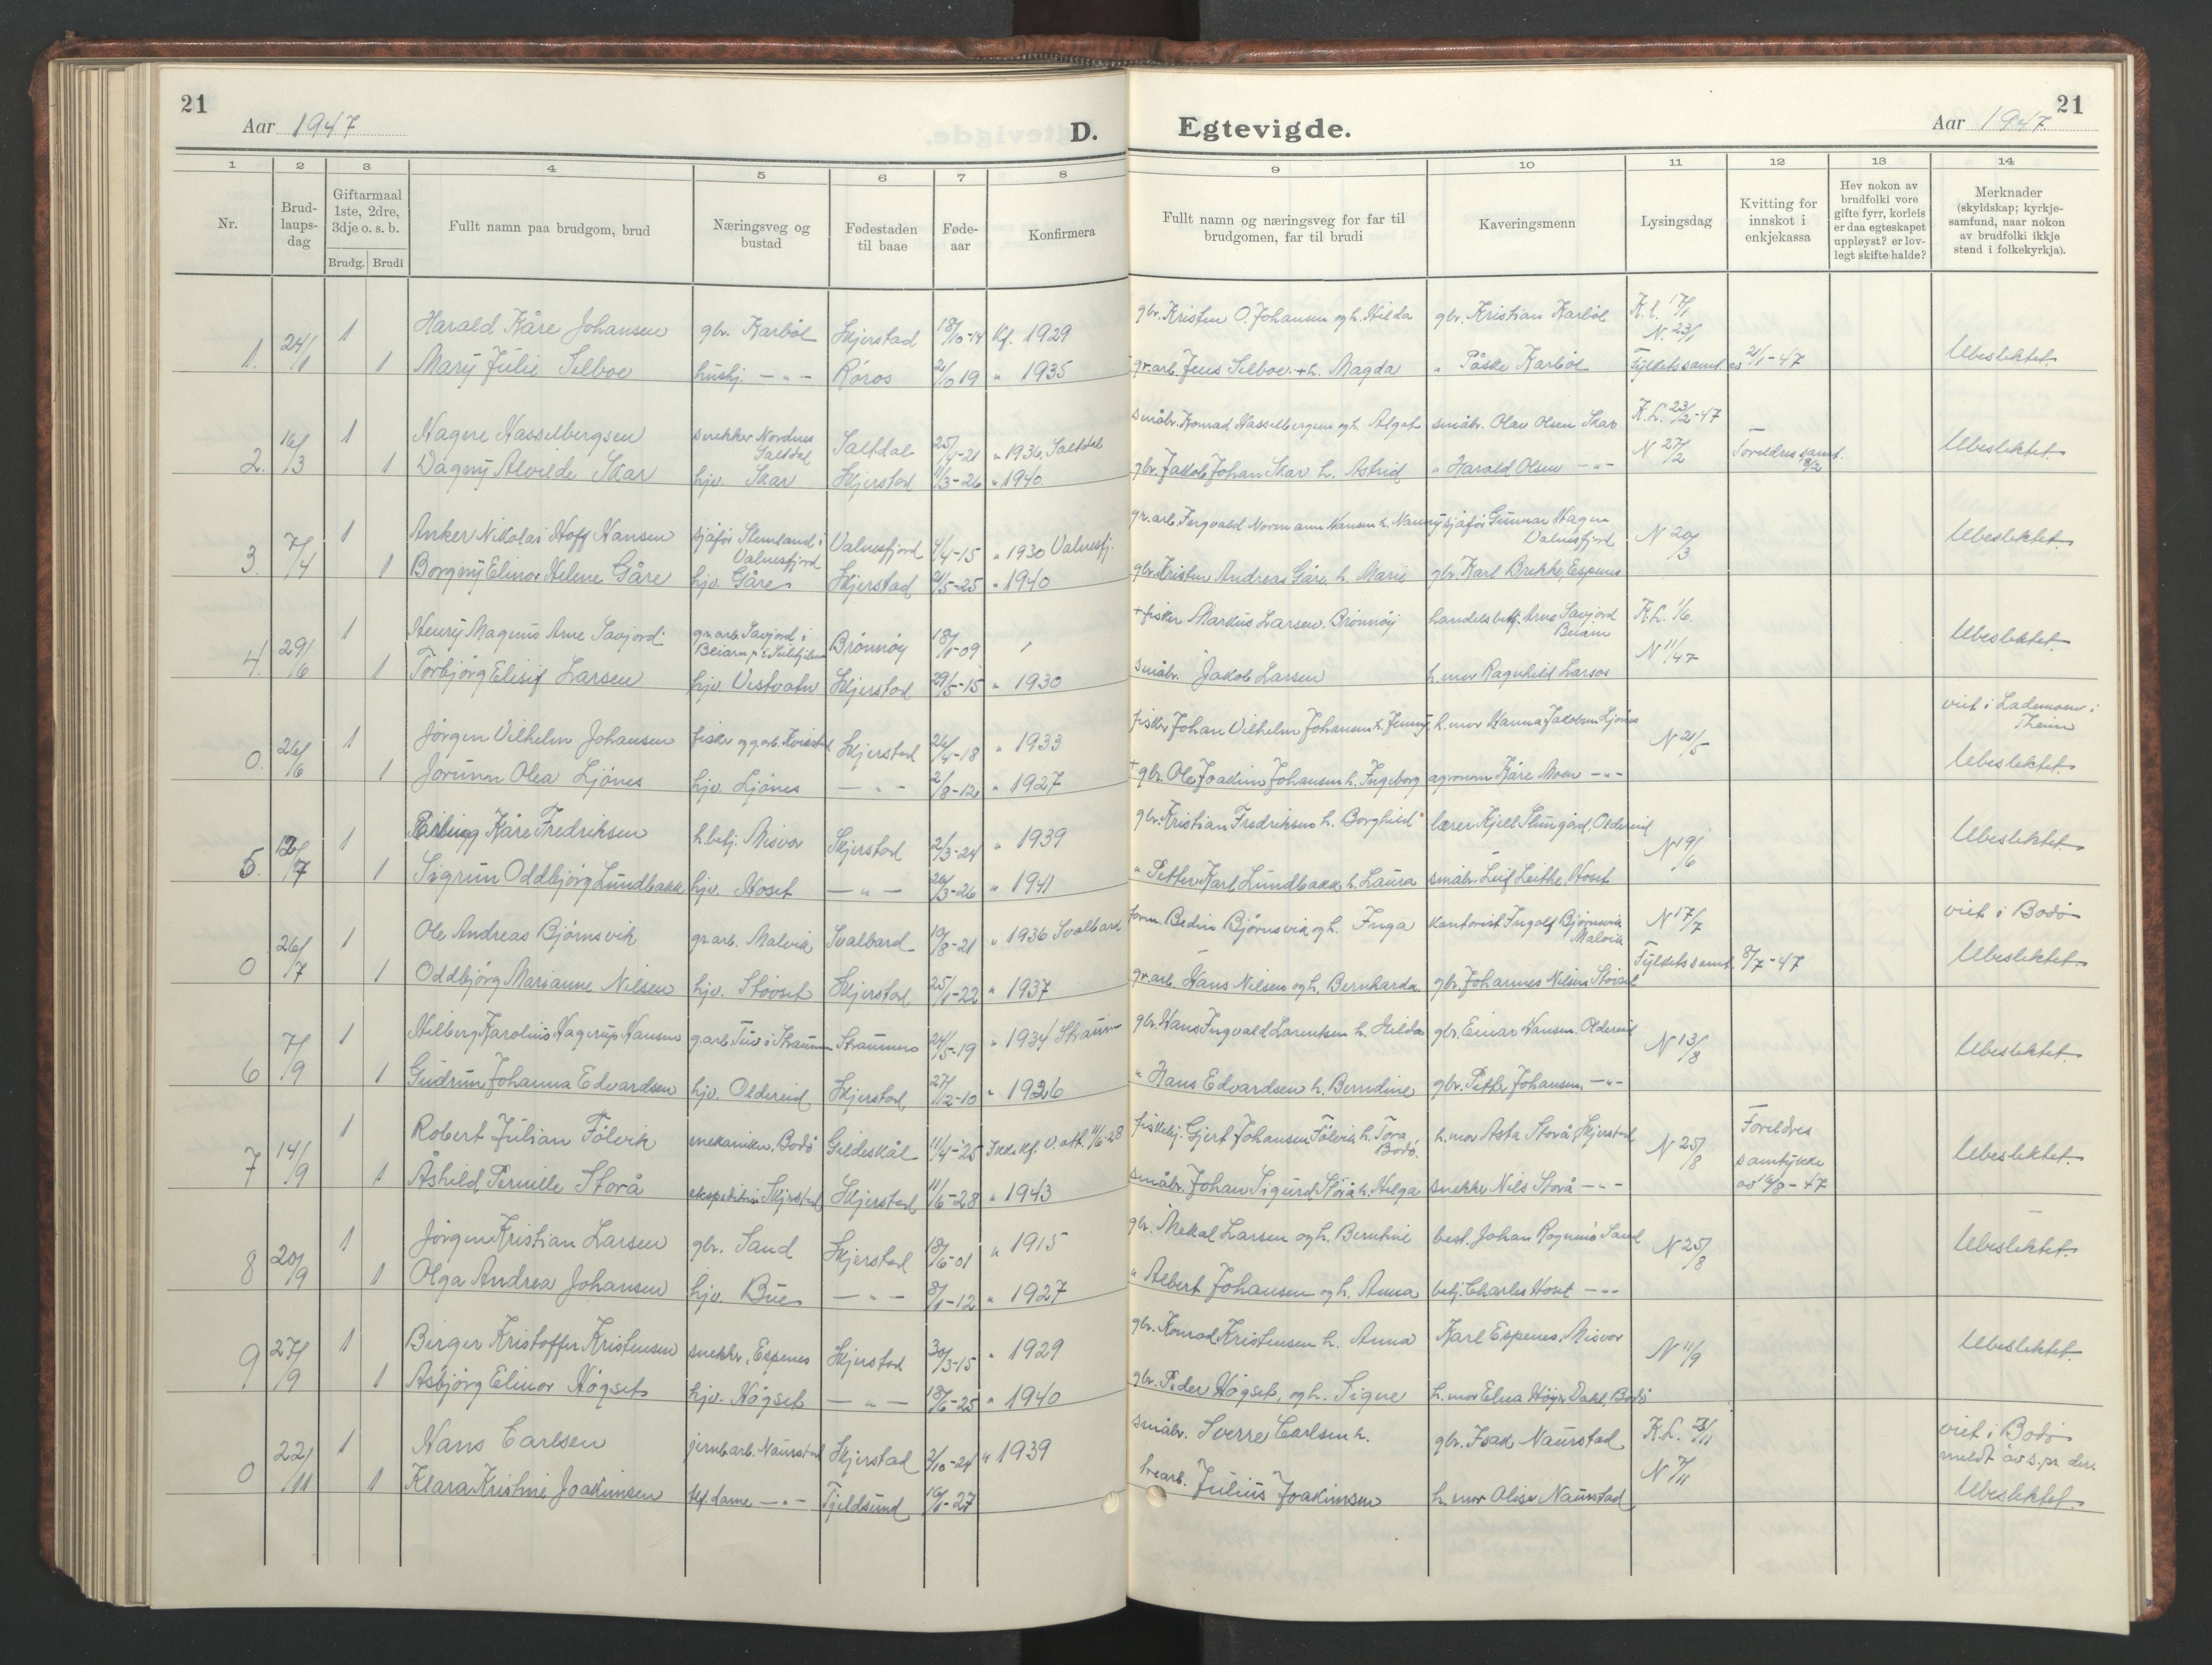 21
Aar 1947
D.
Egtevigde.
21
Aar 1947.
1 2 3 4 5 6 7 8 9 10 11 12 13 14
Nr.
Brud-
laups-
dag
Giftarmaal
1ste, 2dre,
3dje o. s. b.
Brudg. Brudi
Fullt namn paa brudgom, brud
Næringsveg og
bustad
Fødestaden
til baae
Føde-
aar
Konfirmera
Fullt namn og næringsveg for far til
brudgomen, far til brudi
Kaveringsmenn
Lysingsdag
Kvitting for
innskot i
enkjekassa
Hev nokon av
brudfolki vore
gifte fyrr, korleis
er daa egteskapet
uppløyst? er lov-
legt skifte halde?
Merknader
(skyldskap; kyrkje-
samfund, naar nokon
av brudfolki ikkje
stend i folkekyrkja).
1. 24/1 1 Harald Kåre Johansen gbr. Karbøl Skjerstad 18/10-14 Kf. 1929 gbr. Kristen O. Johansen og h. Hilda gbr. Kristian Karbøl K.l. 17/1 N. 23/1
1 Mary Julie Selboe hushj. -"- Røros 2/10 19 " 1935 gr.arb. Jens Selboe + h. Magda " Påske Karbøl Fylketssamt. av 21/1-47 Ubeslektet.
2. 16/3 1 Hagne Hasselbergsen snekker Nordnes Saltdal Saltdal 25/4-21 " 1936, Saltdal småbr. Konrad Hasselbergsen og h. Algot småbr. Olav Olsen Skar K.L. 23/2-47
1 Dagny Alvilde Skar hjv. Skar Skjerstad 11/3-26 " 1940. gbr. Jakob Johan Skar h. Astrid " Harald Olsen -"- N 27/2 Foreldres samt. 8/2 Ubeslektet.
3. 7/4 1 Anker Nikolai Hoff Hansen sjåfør Stemland i Valnesfjord Valnesfjord 4/4-15 " 1930 Valnesfj. gr.arb. Ingvald Normann Hansen h. Nanny sjåfør Gunnar Hagen Valnesfjord N 20/3 Ubeslektet.
1 Borgny Elinor Helene Gåre hjv. Gåre Skjerstad 21/5-25 " 1940 gbr. Kristen Andreas Gåre, h. Marie gbr. Karl Brekke, Espenes
4. 29/6 1 Henry Magnus Arne Savjord gr.arb. Savjord i Beiarn Brønnøy 18/1-09 + fisker Markus Larsen. Brønnøy handelsbetj. Arne Savjord Beiarn K.L. 1/6.
1 Torbjørg Elisif Larsen hjv. Vestvatn Skjerstad 29/5-15 " 1930 småbr. Jakob Larsen h.mor Ragnhild Larsos N 11/47 Ubeslektet.
0. 26/6 1 Jørgen Vilhelm Johansen fisker og g.arb. Skjerstad 26/4-18 " 1933 fisker Johan Vilhelm Johansen h. Jenny h.mor Hanna Jakobsen Ljønes N 21/5 viet i Lademoen i Theim
1 Jorunn Olea Ljønes hjv. Ljønes -"- 2/8-12 " 1927 + gbr. Ole Joakim Johansen h. Ingeborg agronom Kåre Moen -"- Ubeslektet.
5. 12/7 1 Erling Kåre Fredriksen h.betj. Misvær Skjerstad 2/3-24 " 1939 gbr. Kristian Fredriksen h. Borghild lærer Kjell Slungård, Oldereid N 19/6 Ubeslektet.
1 Sigrun Oddbjørg Lundbakk hjv. Hoset -"- 20/3-26 " 1941 " Petter Karl Lundbakk h. Laura småbr. Leif Leithe, Hoset
0 26/7 1 Ole Andreas Bjørnsvik gr.arb. Malvik Svalbard 19/8-21 " 1936 Svalbard form. Bedin Bjørnsvik og h. Inga kontorist Ingolf Bjørnsvik Malvik N 17/7 viet i Bodø
1 Oddbjørg Marianne Nilsen hjv. Støvset Skjerstad 25/1-22 " 1937 gr.arb. Hans Nilsen og h. Bernharda gbr. Johannes Nilsen Støvset Fylketssamt. 8/7-47 Ubeslektet
6 7/9 1 Hilberg Karolius Hagerup Hansen g.arb. Tuv i Straumen Straumen 24/5-19 " 1934 Straum- gbr. Hans Ingvald Larentsen h. Hilda gbr. Einar Hansen. Oldereid N 13/8 Ubeslektet.
1 Gudrun Johanna Edvardsen hjv. Oldereid Skjerstad 27/12-10 " 1926 " Hans Edvardsen h. Berndine gbr. Petter Johansen -"-
7 14/9 1 Robert Julian Følvik mekaniker, Bodø Gildeskål 11/4-25 Ikke kf. v. att. 11/6-28 fiskehj. Gjert Johansen Følvik h. Tora Bodø. h.mor Asta Storå, Skjerstad N 25/8 Foreldres samtykke av 16/8-47 Ubeslektet.
1 Åshild Pernille Storå ekspeditrise Skjerstad Skjerstad 11/6-28 " 1943 småbr. Johan Sigurd Storå h. Helga snekker Nils Storå -"-
8 20/9 1 Jørgen Kristian Larsen gbr. Sand Skjerstad 18/6-01 " 1915 gbr. Mekal Larsen og h. Berntine best. Johan Rognmo Sand N 25/8 Ubeslektet.
1 Olga Andrea Johansen hjv. Bue -"- 8/1-12 " 1927 " Albert Johansen og h. Anna betj. Charles Hoset -"-
9 27/9 1 Birger Kristoffer Kristensen snekker, Espenes Skjerstad 30/3-15 " 1929 gbr. Konrad Kristensen h. Anna Karl Espenes, Misvær N 11/9 Ubeslektet.
1 Åsbjørg Elinor Høgset hjv. Høgset -"- 18/6-25 " 1940 gbr. Peder Høgset, og h. Signe h.mor Elna Høgs. Dahl, Bodø
0 22/11 1 Hans Carlsen jernb.arb. Naurstad Skjerstad 3/10-24 " 1939 småbr. Sverre Carlsen h. gbr. Isak Naurstad K.L. /11 viet i Bodø meldt av s.pr. der.
1 Klara Kristine Joakimsen tlf.dame -"- Tjeldsund 16/1-27 Julius Joakimsen h.mor Olise Naurstad N 7/11 Ubeslektet.